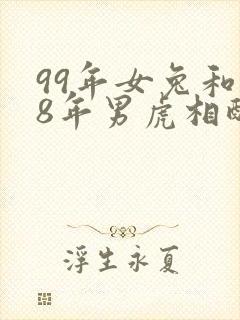 99年女兔和
8年男虎相
浮生永夏